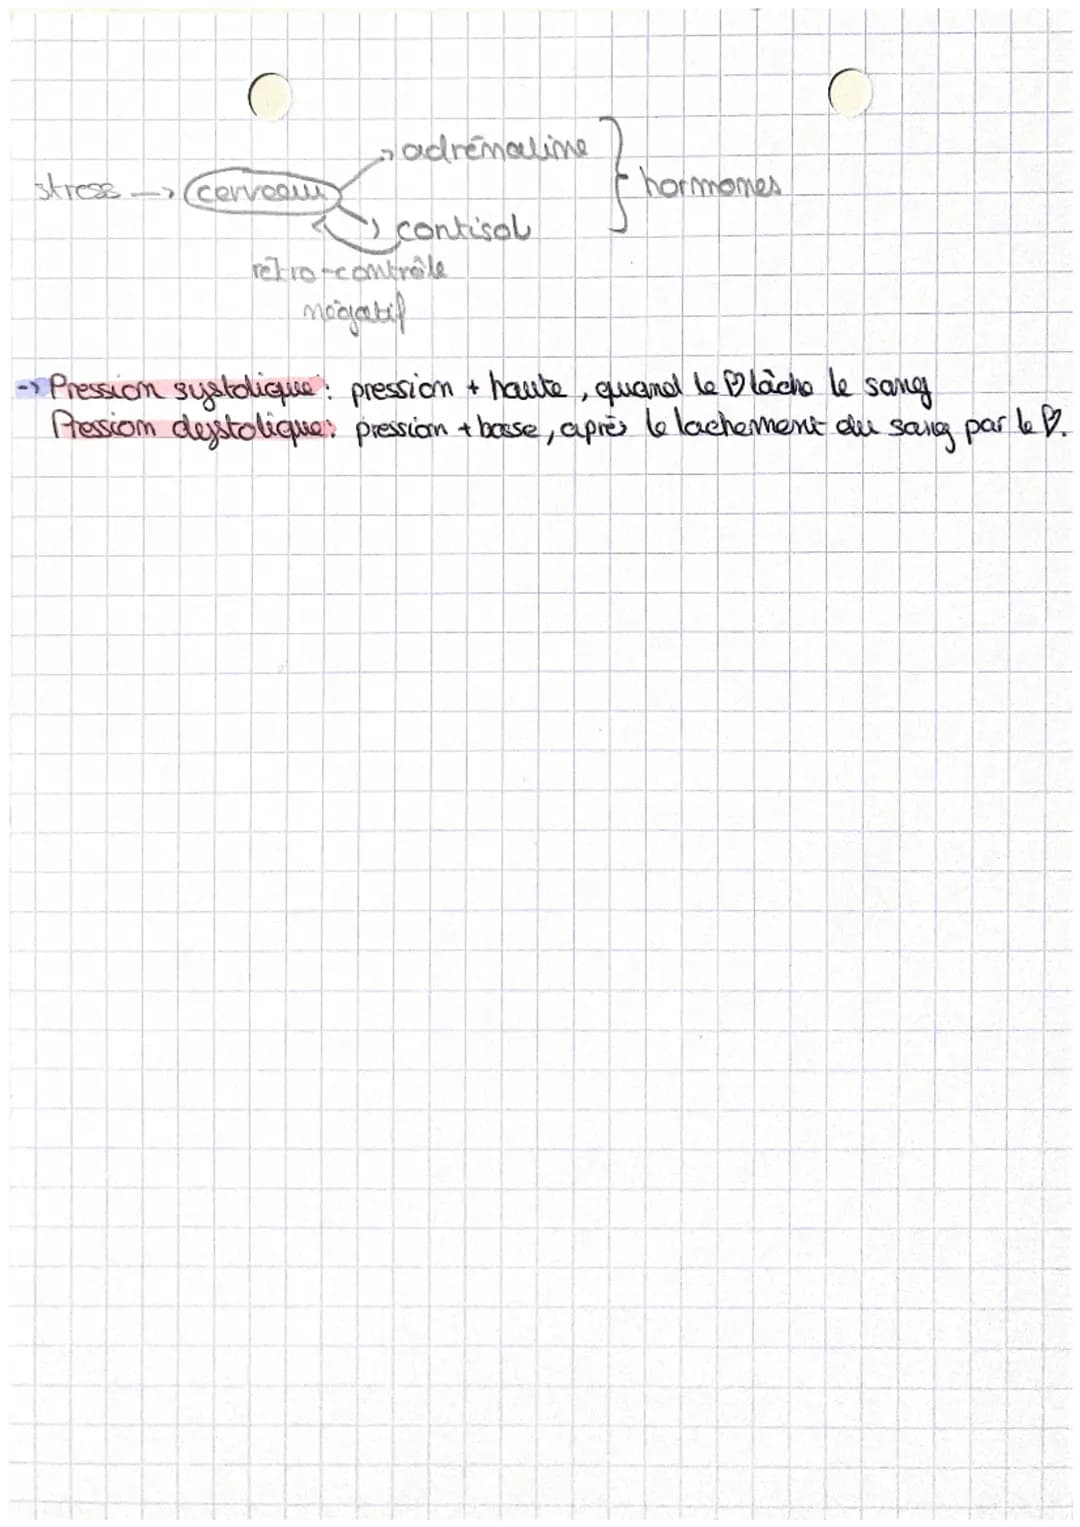 adrénaline
stress -> cerveau
hormones
contisol
rétro-contrôle
négatif
-> Pression systolique : pression + haute, quand le ♡ lâche le sang
Pression deystolique : pression + basse, après le lachement du sang par le ♡.